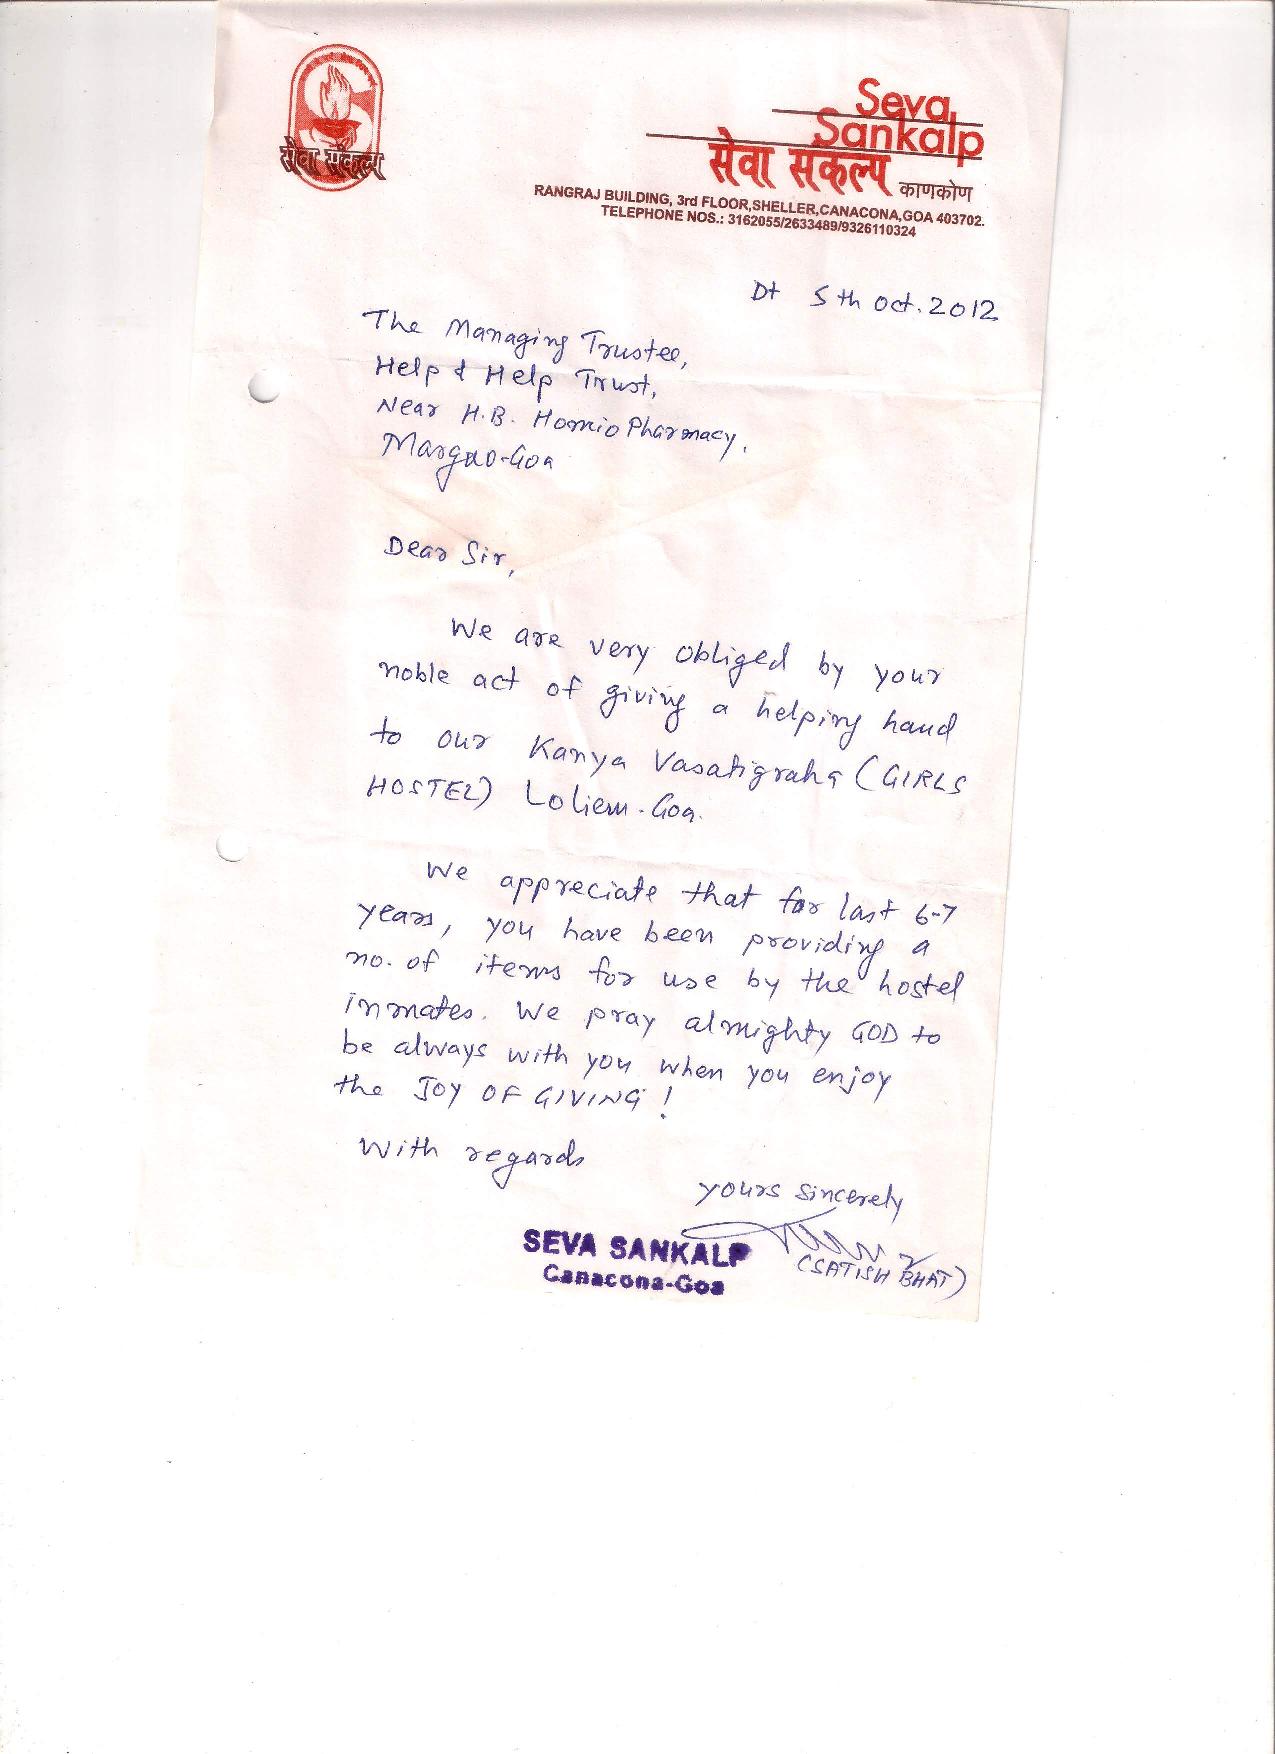 सेवा संकल्प
Seva
Sankalp
सेवा संकल्प काणकोण
RANGRAJ BUILDING, 3rd FLOOR,SHELLER,CANACONA,GOA 403702.
TELEPHONE NOS.: 3162055/2633489/9326110324
Dt 5th Oct. 2012
The Managing Trustee,
Help & Help Trust,
Near H.B. Homio Pharmacy,
Margao-Goa
Dear Sir,
We are very obliged by your
noble act of giving a helping hand
to our Kanya Vasatigraha (GIRLS
HOSTEL) Loliem-Goa.
We appreciate that for last 6-7
years, you have been providing a
no. of items for use by the hostel
inmates. We pray almighty GOD to
be always with you when you enjoy
the JOY OF GIVING!
With regards
yours sincerely
(SATISH BHAT)
SEVA SANKALP
Canacona-Goa